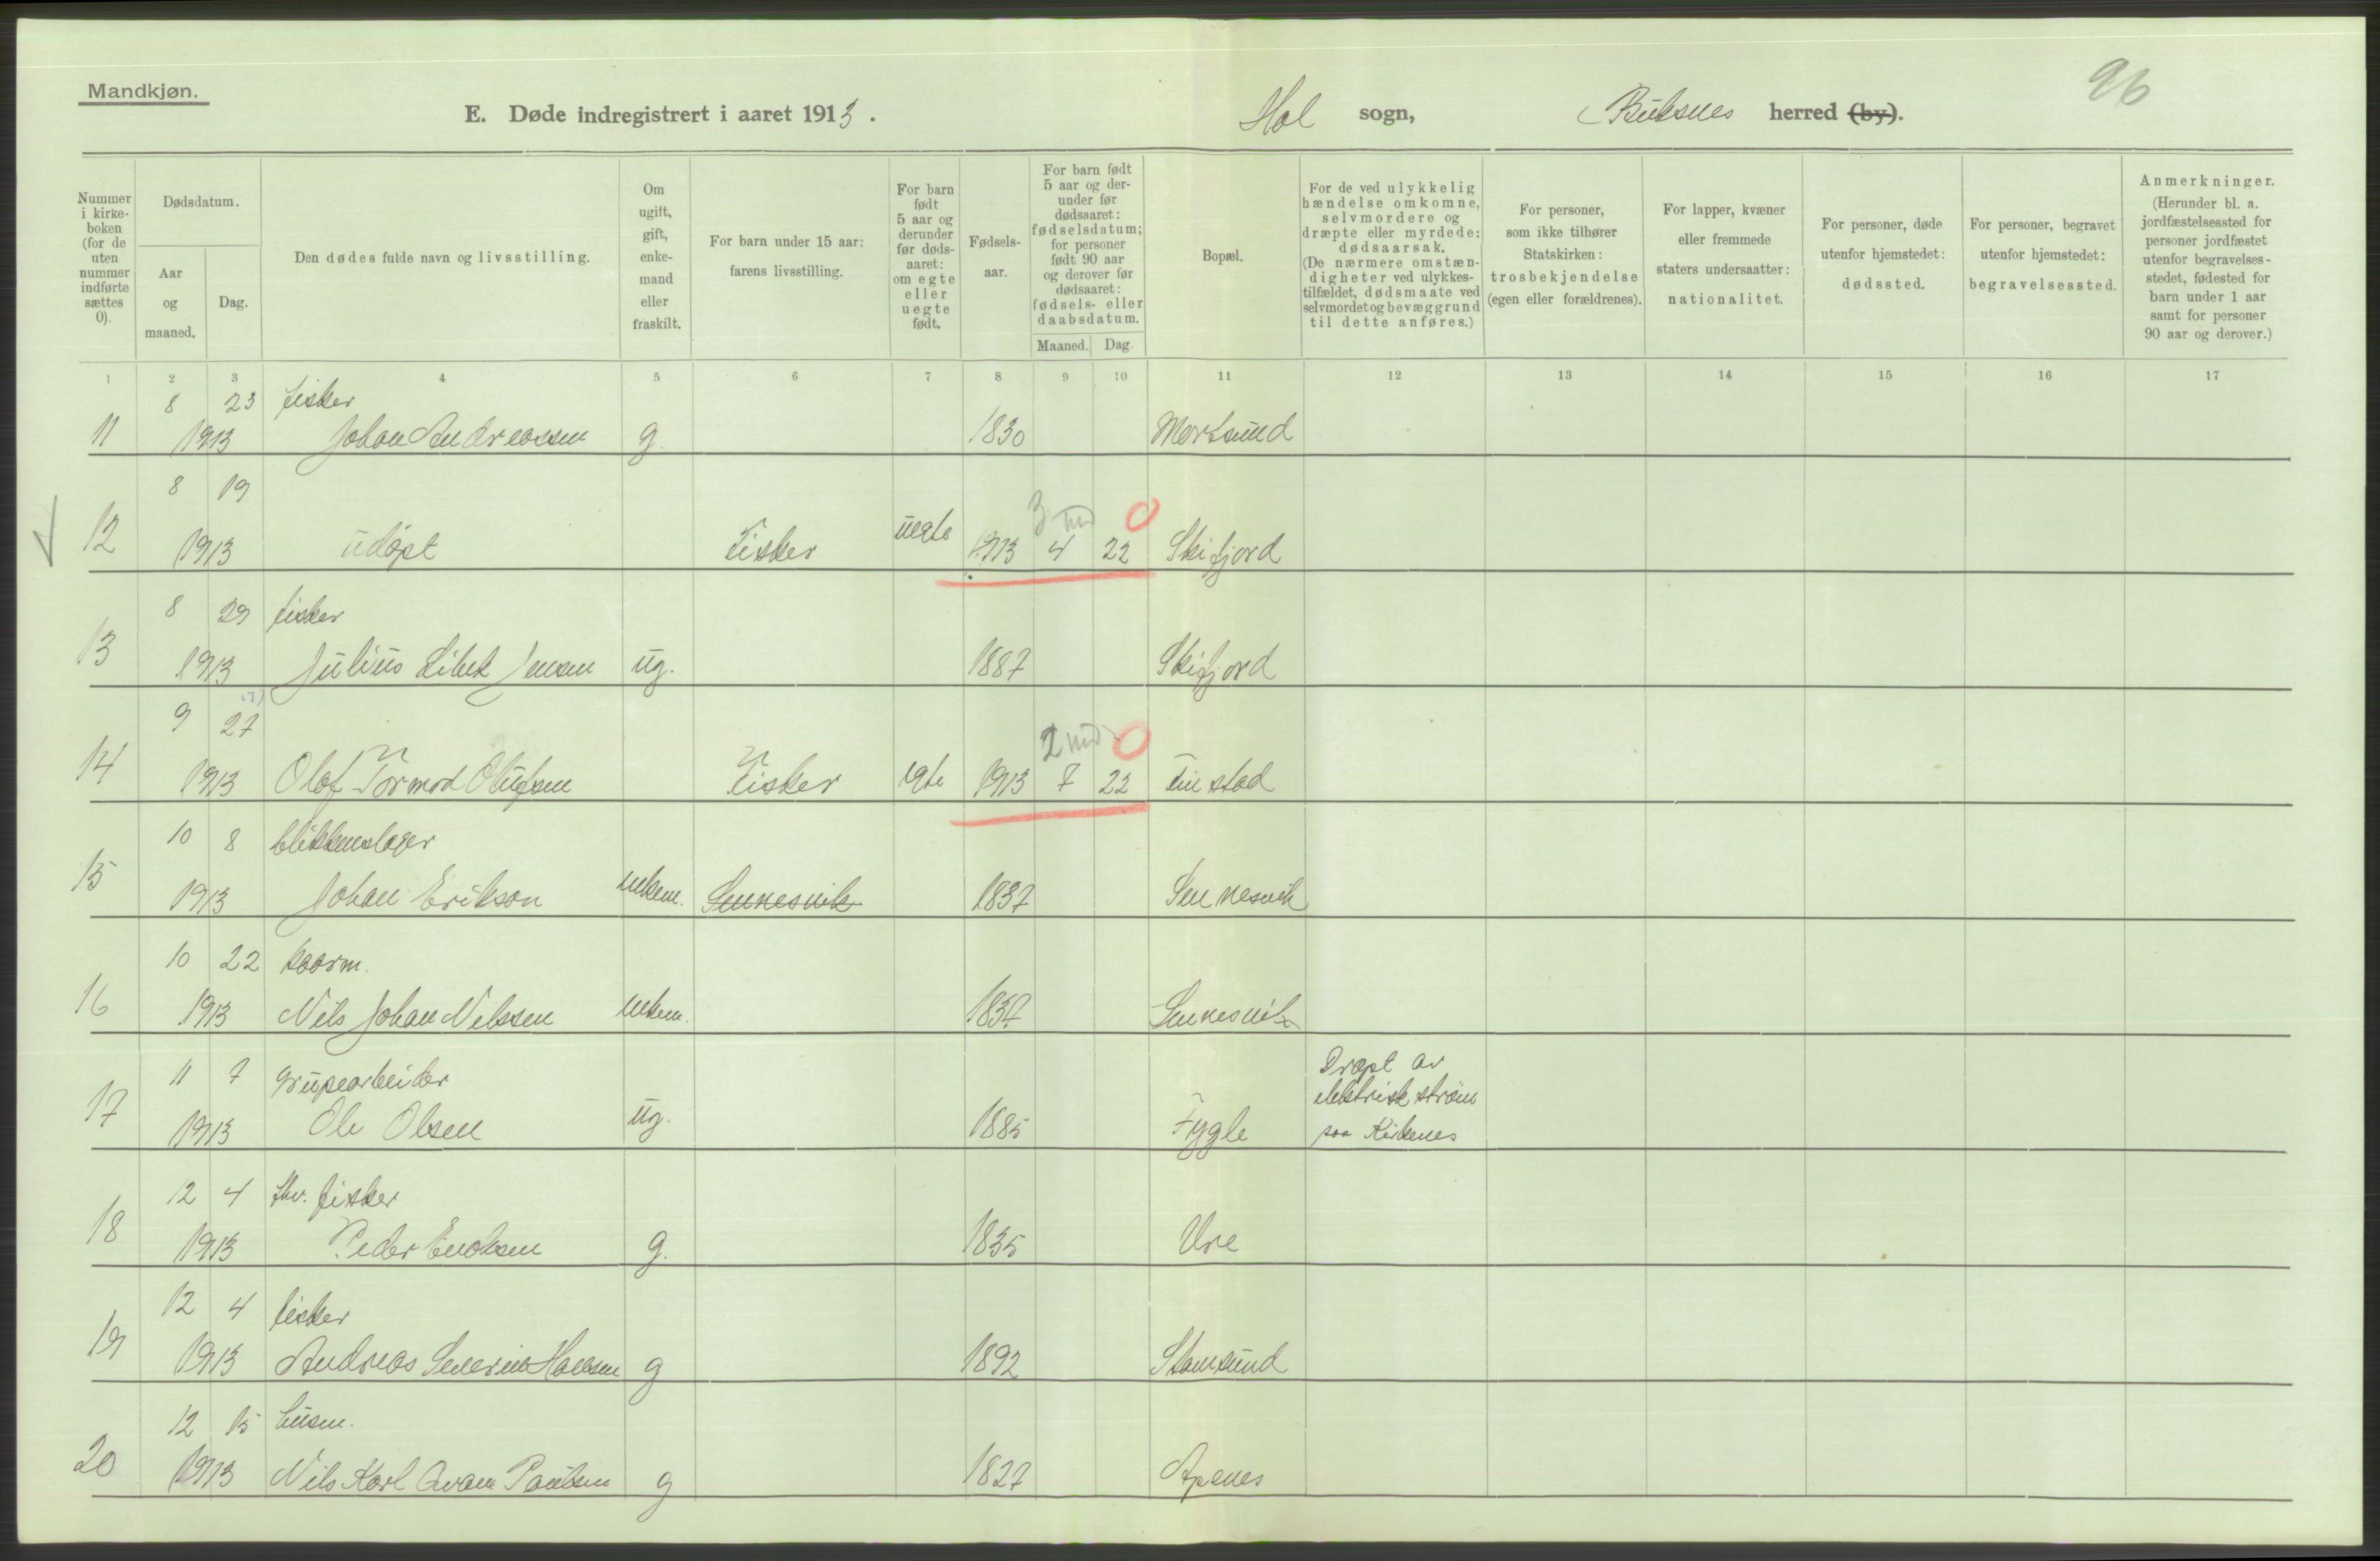 96
Mandkjøn.
E. Døde indregistrert i aaret 1913. Hol sogn, Buksnes herred (by).
Nummer i kirke- boken (for de uten nummer indførte sættes 0).
Dødsdatum.
Aar og maaned.
Dag.
Den dødes fulde navn og livsstilling.
Om ugift, gift, enke- mand eller fraskilt.
For barn under 15 aar: farens livsstilling.
For barn født 5 aar og derunder før døds- aaret: om egte eller uegte født.
Fødsels- aar.
For barn født 5 aar og der- under før dødsaaret: fødselsdatum; for personer født 90 aar og derover før dødsaaret: fødsels- eller daabsdatum.
Maaned. Dag.
Bopæl.
For de ved ulykkelig hændelse omkomne, selvmordere og dræpte eller myrdede: dødsaarsak. (De nærmere omstæn- digheter ved ulykkes- tilfældet, dødsmaate ved selvmordet og bevæggrund til dette anføres.)
For personer, som ikke tilhører Statskirken: trosbekjendelse (egen eller forældrenes).
For lapper, kvæner eller fremmede staters undersaatter: nationalitet.
For personer, døde utenfor hjemstedet: dødssted.
For personer, begravet utenfor hjemstedet: begravelsessted.
Anmerkninger. (Herunder bl. a. jordfæstelsessted for personer jordfæstet utenfor begravelses- stedet, fødested for barn under 1 aar samt for personer 90 aar og derover.)
1 2 3 4 5 6 7 8 9 10 11 12 13 14 15 16 17
8 23 fisker
11 1913 Johan Andreassen g. 1830 Mortsund
8 19 3 md 0
12 1913 udøpt Fisker uegte 1913 4 22 Skifjord
8 29 fisker
13 1913 Julius Libek Jensen ug. 1887 Skifjord
9 27 2 md 0
14 1913 Olaf Tormod Olufsen Fisker egte 1913 7 22 Finstad
10 8 blikkenslager
15 1913 Johan Erikson enkem. Sennesvik 1837 Sennesvik
10 22 kaarm.
16 1913 Nils Johan Nilssen enkem. 1837 Sennesvik
11 7 grupearbeider Dræpt av
elektrisk strøm
17 1913 Ole Olsen ug. 1885 Fygle paa Kirkenes
12 4 fhv. fisker
18 1913 Peder Enoksen g. 1835 Ure
12 4 fisker
19 1913 Andreas Severin Hansen g 1892 Stamsund
12 15 husm.
20 1913 Nils Karl Paulsen g 1827 Apenes